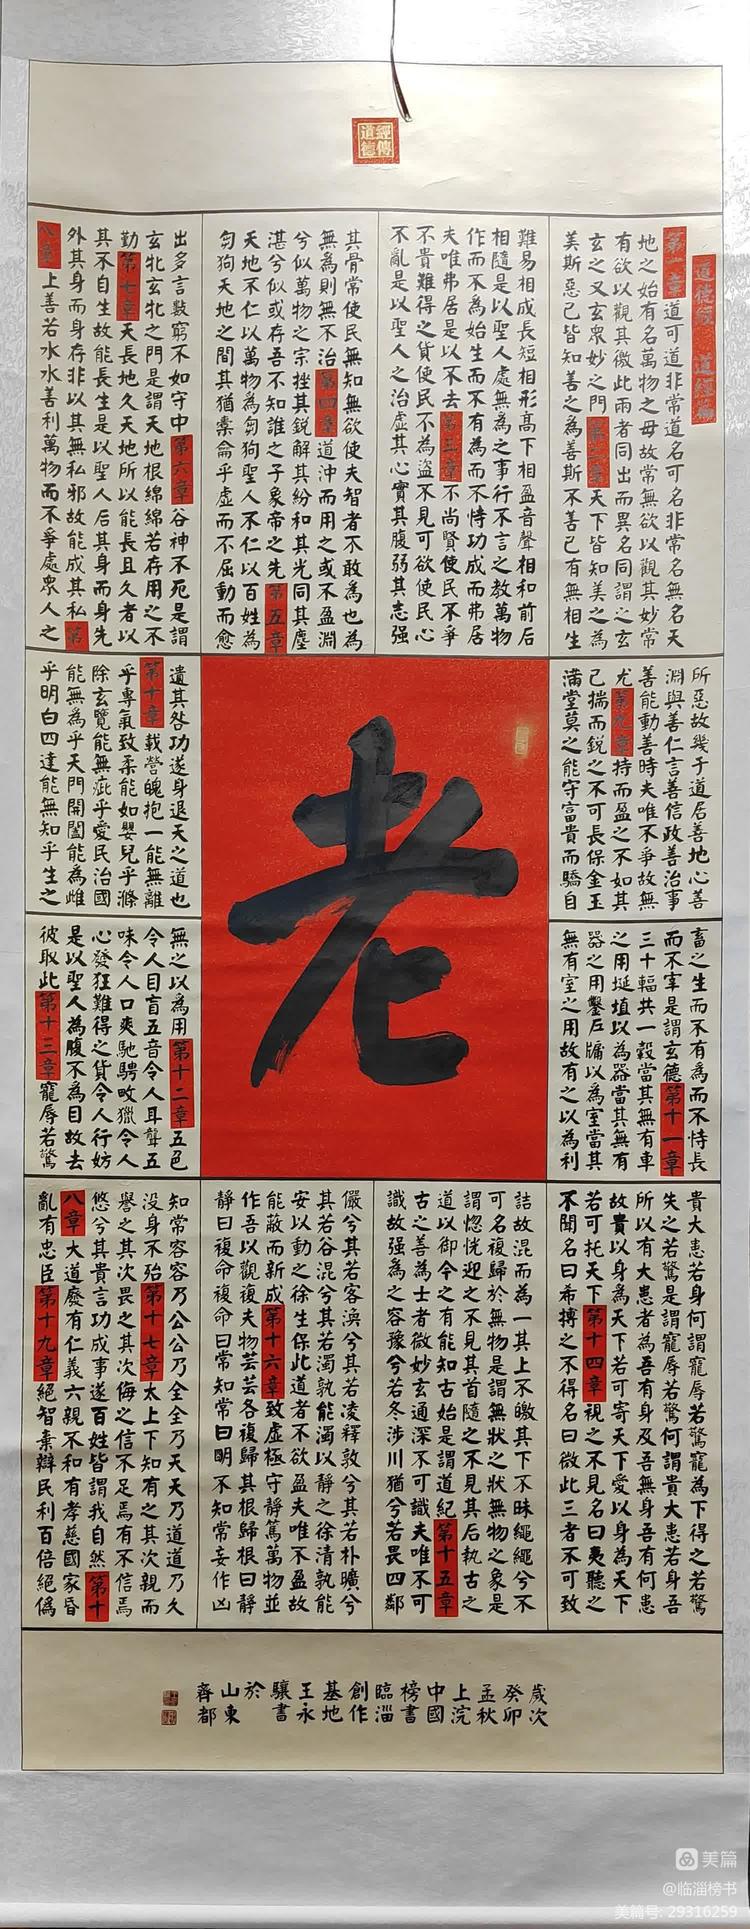 道德經傳
道德經 道經篇
第一章道可道非常道名可名非常名無名天
地之始有名萬物之毋故常無欲以觀其妙常
有欲以觀其徼此兩者同出而異名同謂之玄
玄之又玄衆妙之門第二章天下皆知美之為
美斯惡已皆知善之為善斯不善已有無相生
難易相成長短相形髙下相盈音聲相和前后
相隨是以聖人處無為之事行不言之教萬物
作而不為始生而不有為而不恃功成而弗居
夫唯弗居是以不去第三章不尚賢使民不爭
不貴難得之貨使民不為盜不見可欲使民心
不亂是以聖人之治虛其心實其腹弱其志强
其骨常使民無知無欲使夫智者不敢為也為
無為則無不治第四章道沖而用之或不盈淵
兮似萬物之宗挫其鋭解其紛和其光同其塵
湛兮似或存吾不知誰之子象帝之先第五章
天地不仁以萬物為芻狗聖人不仁以百姓為
芻狗天地之間其猶橐龠乎虛而不屈動而愈
出多言數窮不如守中第六章谷神不死是謂
玄牝玄牝之門是謂天地根綿綿若存用之不
勤第七章天長地久天地所以能長且久者以
其不自生故能長生是以聖人后其身而身先
外其身而身存非以其無私邪故能成其私第
八章上善若水水善利萬物而不爭處衆人之
所惡故幾于道居善地心善
淵與善仁言善信政善治事
善能動善時夫唯不爭故無
尤第九章持而盈之不如其
已揣而鋭之不可長保金玉
满堂莫之能守富貴而驕自
遺其咎功遂身退天之道也
第十章載營魄抱一能無離
乎專氣致柔能如嬰兒乎滌
除玄覽能無疵乎愛民治國
能無為乎天門開闔能為雌
乎明白四達能無知乎生之
老
畜之生而不有為而不恃長
而不宰是謂玄德第十一章
三十輻共一轂當其無有車
之用埏埴以為器當其無有
器之用鑿戶牖以為室當其
無有室之用故有之以為利
無之以為用第十二章五色
令人目盲五音令人耳聾五
味令人口爽馳騁畋獵令人
心發狂難得之貨令人行妨
是以聖人為腹不為目故去
彼取此第十三章寵辱若驚
貴大患若身何謂寵辱若驚寵為下得之若驚
失之若驚是謂寵辱若驚何謂貴大患若身吾
所以有大患者為吾有身及吾無身吾有何患
故貴以身為天下若可寄天下愛以身為天下
若可托天下第十四章視之不見名曰夷聽之
不聞名曰希搏之不得名曰微此三者不可致
詰故混而為一其上不皦其下不昧繩繩兮不
可名複歸於無物是謂無狀之狀無物之象是
謂惚恍迎之不見其首隨之不見其后執古之
道以御今之有能知古始是謂道紀第十五章
古之善為士者微妙玄通深不可識夫唯不可
識故强為之容豫兮若冬涉川猶兮若畏四鄰
儼兮其若客渙兮其若凌釋敦兮其若朴曠兮
其若谷混兮其若濁孰能濁以靜之徐清孰能
安以動之徐生保此道者不欲盈夫唯不盈故
能蔽而新成第十六章致虛極守靜篤萬物並
作吾以觀複夫物芸芸各複歸其根歸根曰靜
靜曰複命複命曰常知常曰明不知常妄作凶
知常容容乃公公乃全全乃天天乃道道乃久
没身不殆第十七章太上下知有之其次親而
譽之其次畏之其次侮之信不足焉有不信焉
悠兮其貴言功成事遂百姓皆謂我自然第十
八章大道廢有仁義六親不和有孝慈國家昏
亂有忠臣第十九章絕智棄辯民利百倍絕偽
歲次
癸卯
孟秋
上浣
中國
榜書
臨淄
創作
基地
王永
驤書
於
山東
齊都
美篇
@临淄榜书
美篇号: 29316259